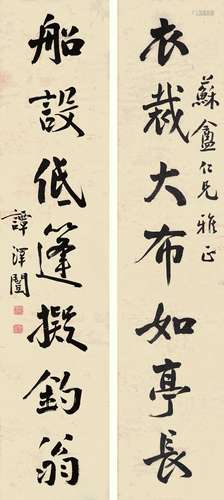 蘇盦仁兄雅正
衣裁大布如亭長
船設低篷擬釣翁
譚澤闓